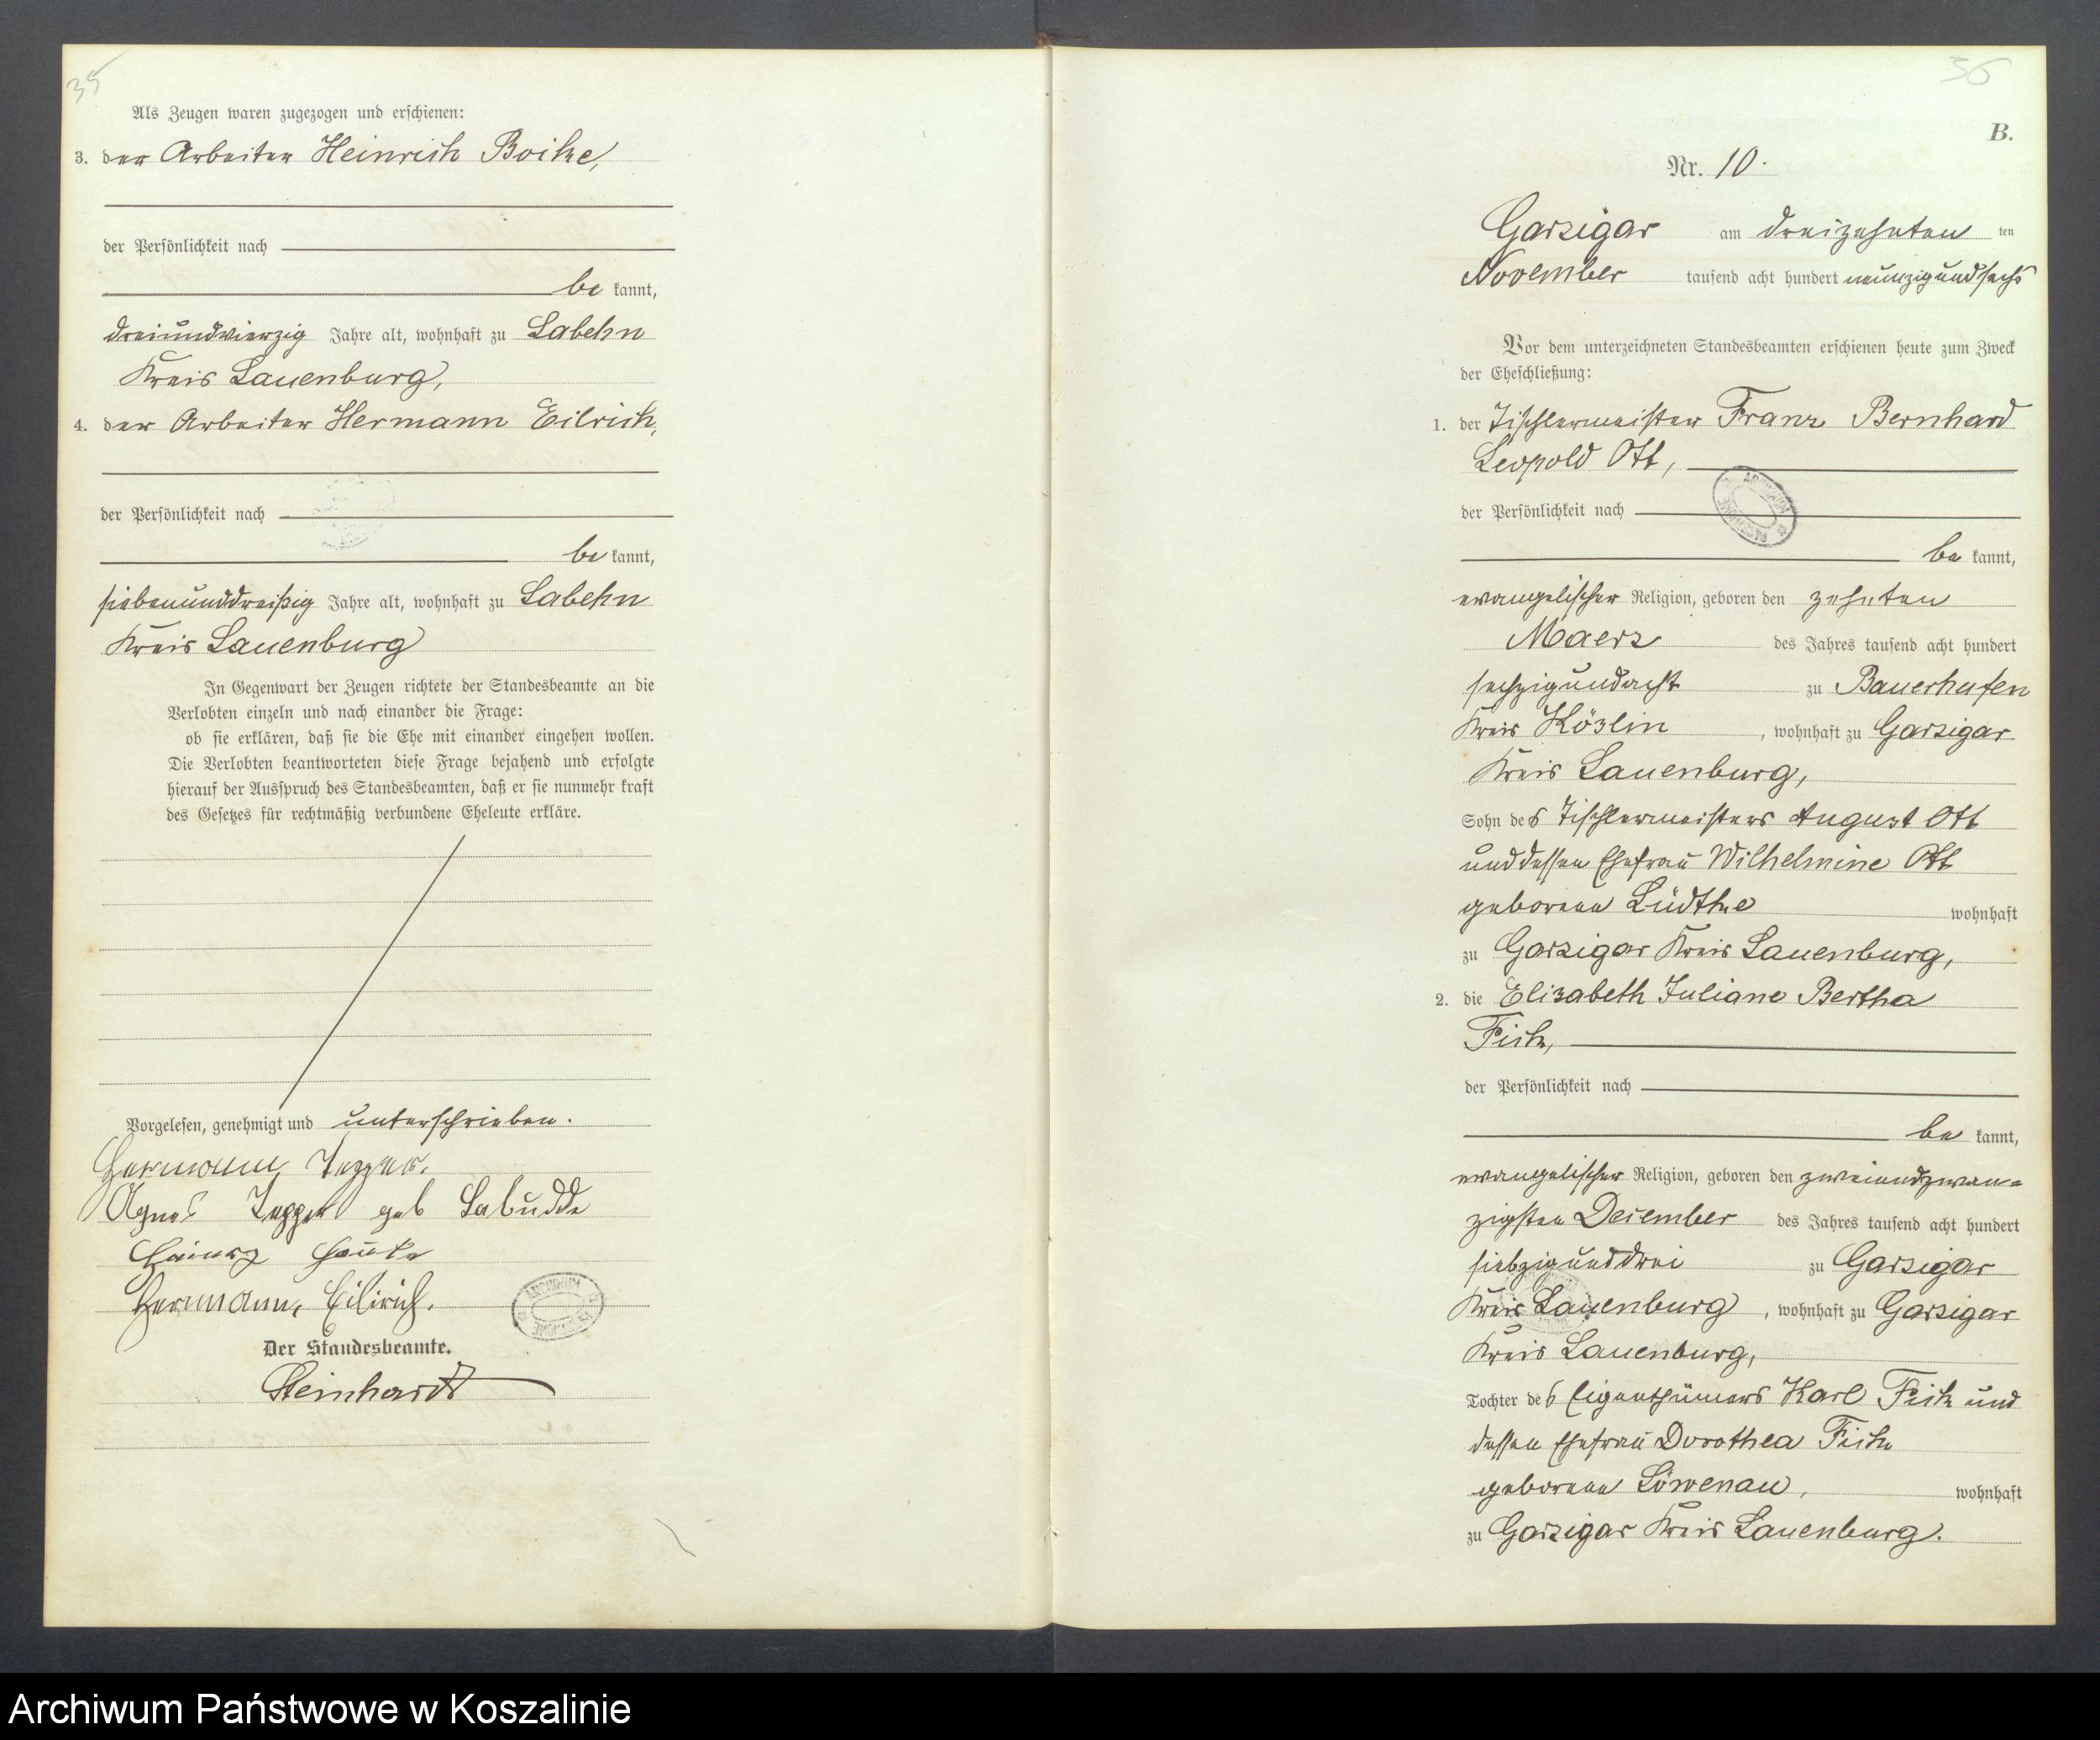 35
Als Zeugen waren zugezogen und erschienen:
3. der Arbeiter Heinrich Boike,
der Persönlichkeit nach
be kannt,
dreiundvierzig Jahre alt, wohnhaft zu Labehn
Kreis Lauenburg,
4. der Arbeiter Hermann Eilrich,
der Persönlichkeit nach
be kannt,
siebenunddreißig Jahre alt, wohnhaft zu Labehn
Kreis Lauenburg
In Gegenwart der Zeugen richtete der Standesbeamte an die
Verlobten einzeln und nach einander die Frage:
ob sie erklären, daß sie die Ehe mit einander eingehen wollen.
Die Verlobten beantworteten diese Frage bejahend und erfolgte
hierauf der Ausspruch des Standesbeamten, daß er sie nunmehr kraft
des Gesetzes für rechtmäßig verbundene Eheleute erkläre.
Vorgelesen, genehmigt und unterschrieben.
Hermann
Agnes geb Labudde
Hermann Eilrich.
Der Standesbeamte.
Steinhardt
36
B.
Nr. 10.
Garzigar am dreizehnten ten
November tausend acht hundert neunzig und sechs
Vor dem unterzeichneten Standesbeamten erschienen heute zum Zweck
der Eheschließung:
1. der Tischlermeister Franz Bernhard
Leopold Ott,
der Persönlichkeit nach
be kannt,
evangelischer Religion, geboren den zehnten
Maerz des Jahres tausend acht hundert
sechzig und acht zu Bauerhufen
Kreis Köslin, wohnhaft zu Garzigar
Kreis Lauenburg,
Sohn des Tischlermeisters August Ott
und dessen Ehefrau Wilhelmine Ott
geborene Lüdtke wohnhaft
zu Garzigar Kreis Lauenburg,
2. die Elisabeth Juliane Bertha
Fick,
der Persönlichkeit nach
be kannt,
evangelischer Religion, geboren den zweiundzwan-
zigsten Dezember des Jahres tausend acht hundert
siebzig und drei zu Garzigar
Kreis Lauenburg, wohnhaft zu Garzigar
Kreis Lauenburg,
Tochter des Eigenthümers Karl Fick und
dessen Ehefrau Dorothea Fick
geborene Löwenau, wohnhaft
zu Garzigar Kreis Lauenburg.
Archiwum Państwowe w Koszalinie